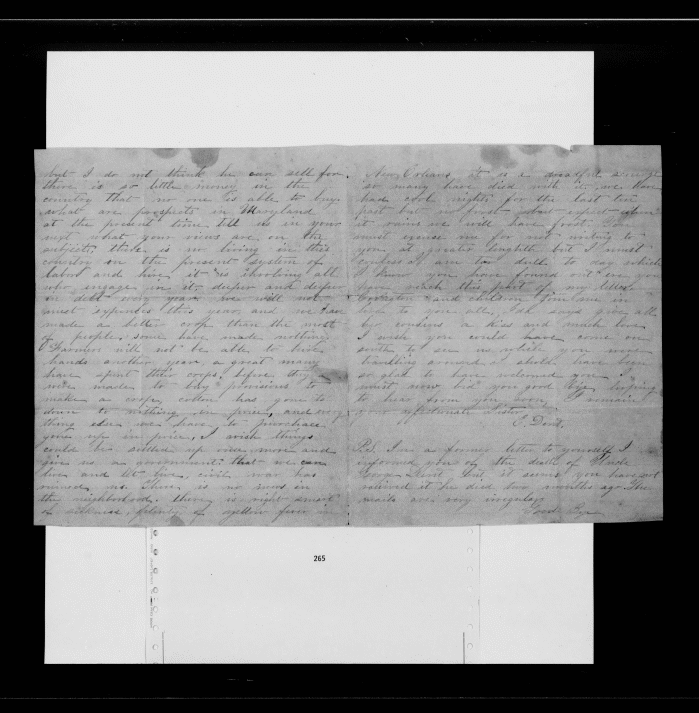 but I do not think he can sell for
there is so little money in the
country that no one is able to buy.
what are prospects in Maryland
at the present time, tell us in your
next what your views are on the
subject, there is no living in this
country on the present system of
labor and hire, it is involving all
who engage in it deeper and deeper
in debt every year we will not
meet expenses this year and we have
made a better crop than the most
of people, some have made nothing
Farmers will not be able to hire
hands another year, a great many
have spent this crops before they
were made to buy provisions to
make a crop, cotton has gone to
down to nothing in price, and every
thing else we have to purchase
gone up in price, I wish things
could be settled up once more and
give us a government that we can
live and let live, civil war has
ruined us. There is no news in
the neighborhood. there is right smart
of sickness, plenty of yellow fever in
New Orleans it is a dreadful
so many have died with it, we have
had cool nights for the last ten
past but no frost, about expect when
it rains we will have frost. You
must excuse me for not writing to
you at greater length but I must
confess I am to dull to day which
I know you have found out ere you
have reach this part of my letter
and children join me in
love to you all, says give all
her cousins a kiss and much love
I wish you could have come on
south to see us while you were
travelling around I should have been
so glad to have welcomed you I
must now bid you good bye hoping
to hear from you soon, I remain
your affectionate sister
E Dent.
P.S. I in a former letter to yourself I
informed you of the death of Uncle
George but it seems you have not
received it he died two months ago The
mails are very irregular
Good bye
265